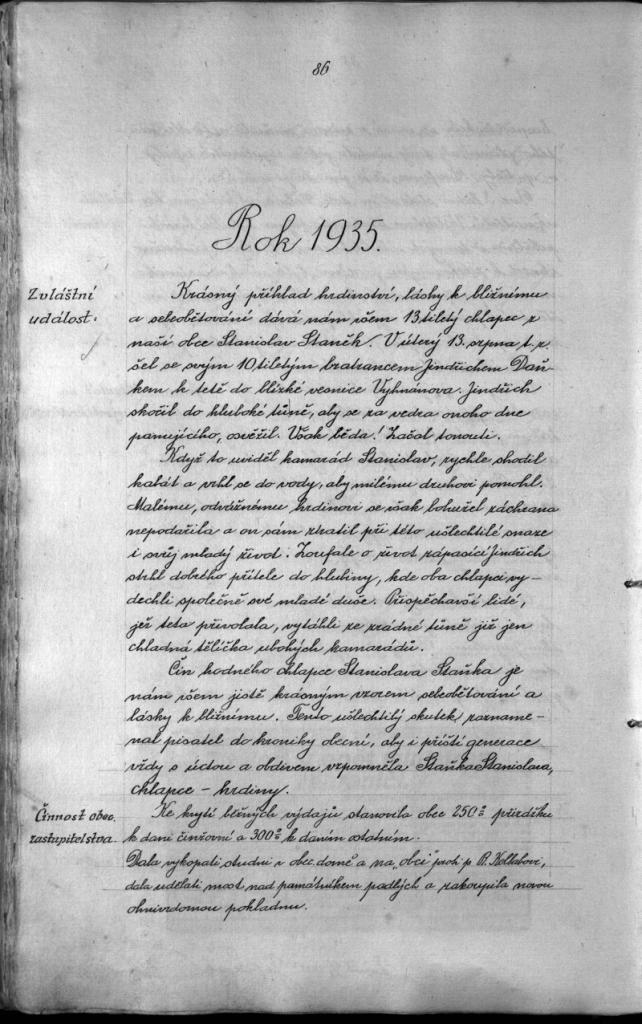 86
Rok 1935.
Zvláštní
událost.
Krásný příklad hrdinství, lásky k bližnímu
a sebeobětování dává nám všem 13 tiletý chlapec z
naší obce Stanislav Staněk. V úterý 13. srpna t. r.
šel se svým 10 tiletým bratrancem Jindřichem Daň-
kem k tetě do blízké vesnice Vyhnánova. Jindřich
skočil do hluboké tůně, aby se za vedra onoho dne
panujícího, osvěžil. Však běda! Začal tonouti.
Když to uviděl kamarád Stanislav, rychle shodil
kabát a vrhl se do vody, aby milému druhovi pomohl.
Malému, odvážnému hrdinovi se však bohužel záchrana
nepodařila a on sám ztratil při této ušlechtilé snaze
i svůj mladý život. Zoufale o život zápasící Jindřich
strhl dobrého přítele do hlubiny, kde oba chlapci vy-
dechli společně své mladé duše. Přispěchavší lidé,
jež teta přivolala, vytáhli ze zrádné tůně již jen
chladná tělíčka ubohých kamarádů.
Čin hodného chlapce Stanislava Staňka je
nám všem jistě krásným vzorem sebeobětování a
lásky k bližnímu. Tento ušlechtilý skutek zazname-
nal pisatel do kroniky obecní, aby i příští generace
vždy s úctou a obdivem vzpomněla Staňka Stanislava,
chlapce - hrdiny.
Činnost obec.
zastupitelstva.
Ke krytí běžných výdajů stanovila obec 250% přirážku
k dani činžovní a 300% k daním ostatním.
Dala vykopati studni v obec. domě a na "obci" proti p. R.
dala udělati most nad památníkem padlých a zakoupila novou
ohnivzdornou pokladnu.